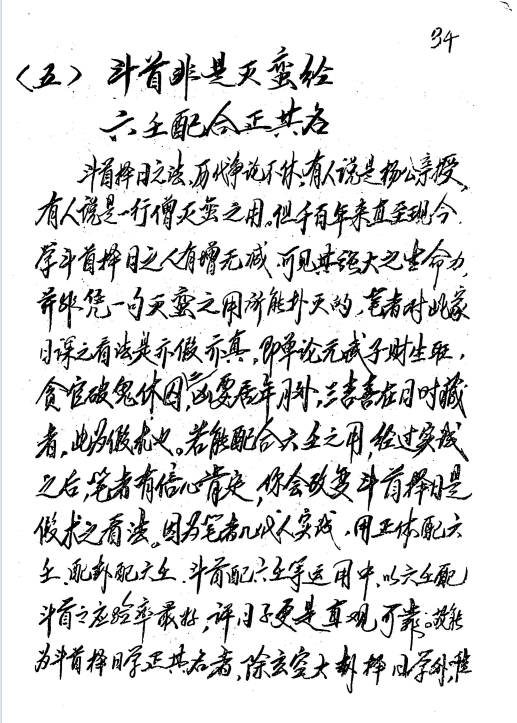 34
〈五〉 斗首非是灭蛮经
六壬配合正其名
斗首择日之法,历代争论不休,有人说是杨公亲授,
有人说是一行僧灭蛮之用。但千百年来直至现今
学斗首择日之人有增无减,可见其强大之生命力,
并非凭一句灭蛮之用所能扑灭的,笔者对此家
日课之看法是亦假亦真,即单论元武子财生旺,
贪官破鬼休囚,二凶要居年月外,三吉喜在日时藏
者,此为假术也。若能配合六壬之用,经过实践
之后,笔者有信心肯定,你会改变斗首择日是
假术之看法。因为笔者几代人实践,用正体配六
壬、配卦配六壬、斗首配六壬等运用中,以六壬配
斗首之应验率最好,评日子更是直观可靠。敢能
为斗首择日学正其名者,除玄空大卦择日学外,惟